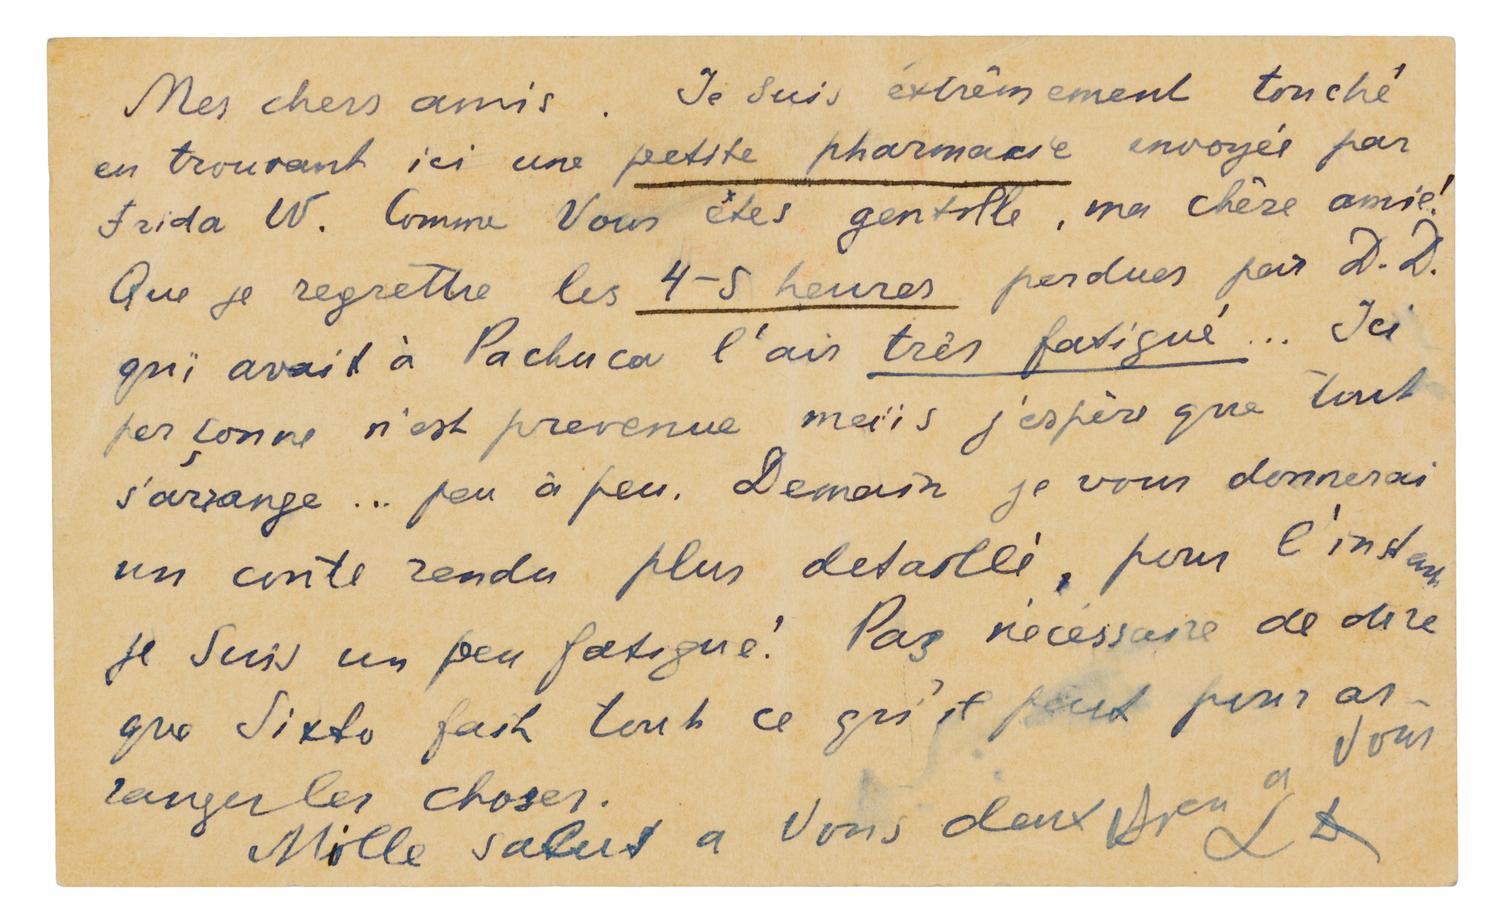 Mes chers amis. Je suis éxtrêmement touché
en trouvant ici une petite pharmacie envoyée par
Frida W. Comme Vous êtes gentille, ma chère amie!
Que je regrettre les 4-5 heures perdues par D.D.
qui avait à Pachuca l'air très fatigué... Ici
personne n'est prevenue mais j'espère que tout
s'arrange... peu à peu. Demain je vous donnerai
un conte rendu plus detaillé, pour l'instant
je suis un peu fatigué! Pas nécéssaire de dire
que Sixto fait tout ce qu'il peut pour ar-
ranger les choses.
Mille salut a Vous deux Bien a Vous